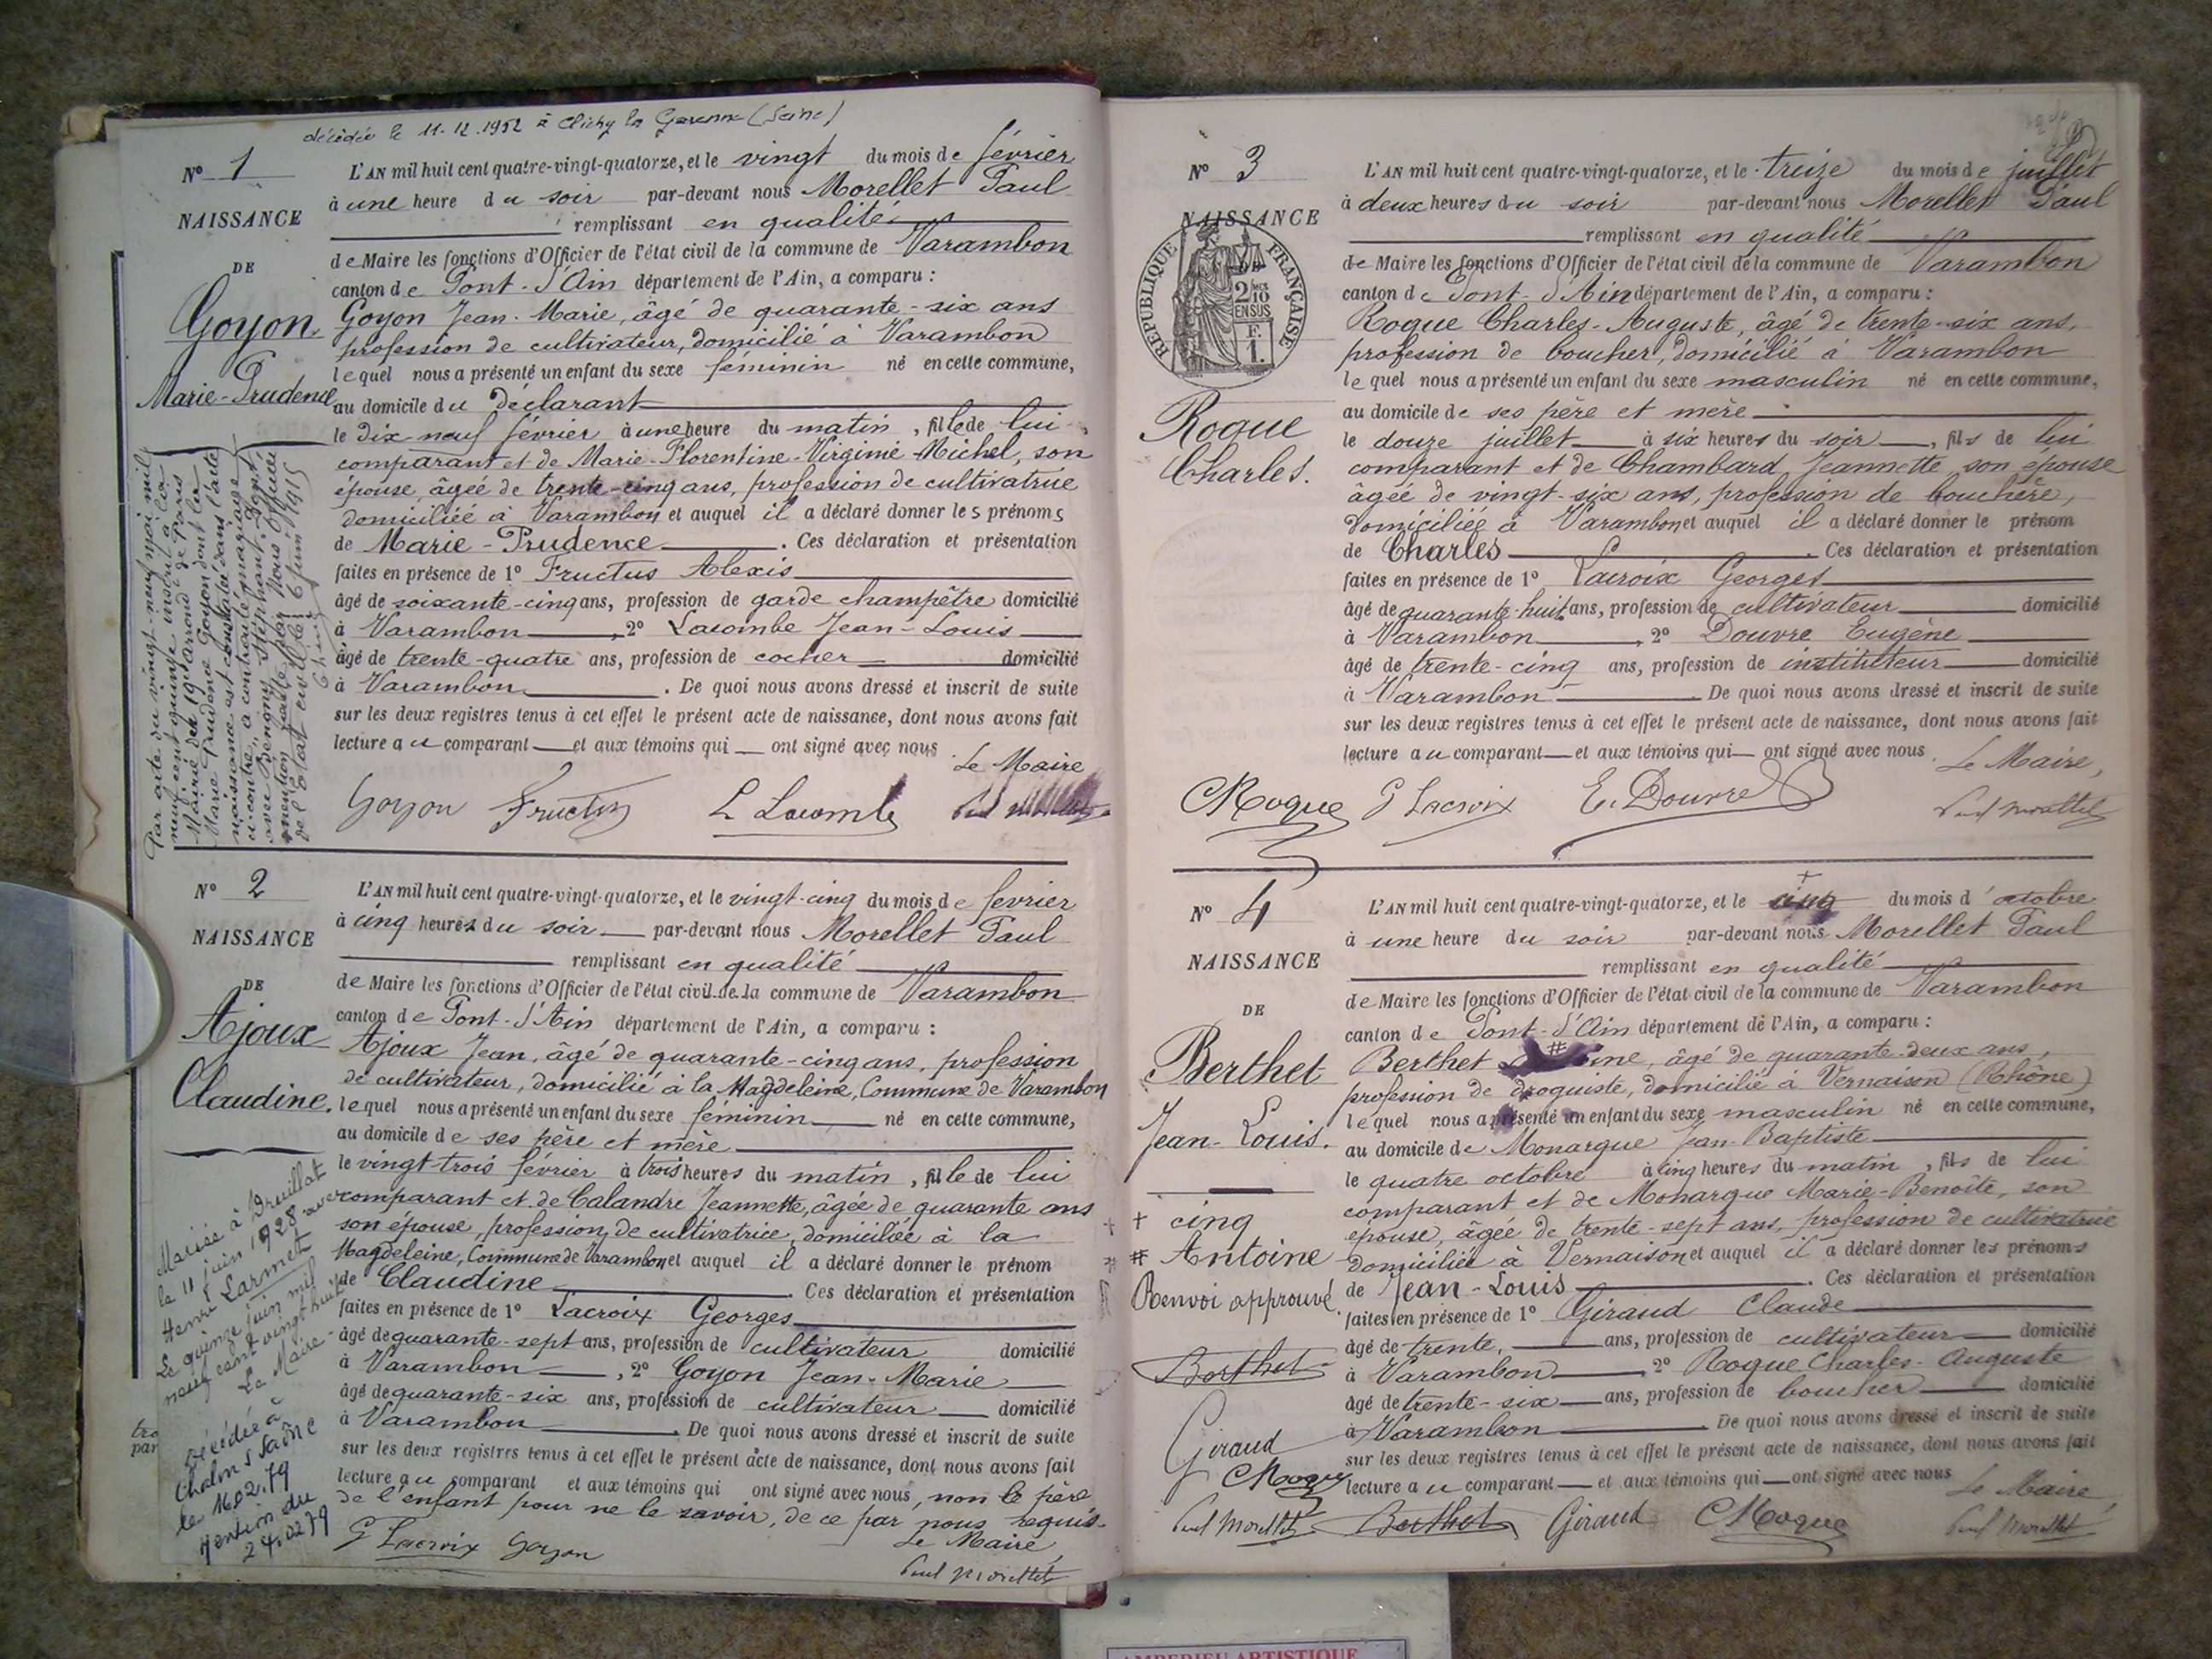 décédée le 11.12.1952 à Clichy la Garenne (Seine)
N° 1
NAISSANCE
DE
Goyon
Marie-Prudence
L'AN mil huit cent quatre-vingt-quatorze, et le vingt du mois de février
à une heure du soir par-devant nous Morellet Paul
remplissant en qualité
de Maire les fonctions d'Officier de l'état civil de la commune de Varambon
canton de Pont-d'Ain département de l'Ain, a comparu :
Goyon Jean-Marie, âgé de quarante-six ans
profession de cultivateur, domicilié à Varambon
lequel nous a présenté un enfant du sexe féminin né en cette commune,
au domicile du déclarant
le dix neuf février à une heure du matin, fille de lui
comparant et de Marie-Florentine-Virginie Michel, son
épouse, âgée de trente-cinq ans, profession de cultivatrice
domiciliée à Varambon et auquel il a déclaré donner les prénoms
de Marie-Prudence. Ces déclaration et présentation
faites en présence de 1° Fructus Alexis
âgé de soixante-cinq ans, profession de garde champêtre domicilié
à Varambon, 2° Lacombe Jean-Louis
âgé de trente-quatre ans, profession de cocher domicilié
à Varambon. De quoi nous avons dressé et inscrit de suite
sur les deux registres tenus à cet effet le présent acte de naissance, dont nous avons fait
lecture au comparant et aux témoins qui ont signé avec nous
Le Maire
Goyon Fructus L Lacombe
Par acte du vingt-neuf mai mil
neuf cent quinze inscrit à la
Mairie du 19e arrond' de Paris
Marie Prudence Goyon dont la
naissance est constatée dans l'acte
ci-contre, a contracté mariage
avec Benigny Stéphant. Dont
mention faite par Nous officier
de l'Etat civil le 6 juin 1915
N° 2
NAISSANCE
DE
Ajoux
Claudine.
L'AN mil huit cent quatre-vingt-quatorze, et le vingt-cinq du mois de fevrier
à cinq heures du soir par-devant nous Morellet Paul
remplissant en qualité
de Maire les fonctions d'Officier de l'état civil de la commune de Varambon
canton de Pont-d'Ain département de l'Ain, a comparu :
Ajoux Jean, âgé de quarante-cinq ans, profession
de cultivateur, domicilié à la Magdeleine, Commune de Varambon
lequel nous a présenté un enfant du sexe féminin né en cette commune,
au domicile de ses père et mère
le vingt-trois février à trois heures du matin, fille de lui
comparant et de Calandre Jeannette, âgée de quarante ans
son épouse, profession de cultivatrice, domiciliée à la
Magdeleine, Commune de Varambon et auquel il a déclaré donner le prénom
de Claudine Ces déclaration et présentation
faites en présence de 1° Lacroix Georges
âgé de quarante-sept ans, profession de cultivateur domicilié
à Varambon, 2° Goyon Jean-Marie
âgé de quarante-six ans, profession de cultivateur domicilié
à Varambon. De quoi nous avons dressé et inscrit de suite
sur les deux registres tenus à cet effet le présent acte de naissance, dont nous avons fait
lecture au comparant et aux témoins qui ont signé avec nous, non le père
de l'enfant pour ne le savoir, de ce par nous requis.
Le Maire
G Lacroix Goyon Paul Morellet
Mariée à Druillat
le 11 juin 1928 avec
Henri Larmet
Le quinze juin mil
neuf cent vingt huit
Le Maire
Décédée à
Chalon s Saône
le 16.02.79
Mention du
24.02.79
tro
par
N° 3
NAISSANCE
DE
RÉPUBLIQUE FRANÇAISE
2/10 EN SUS
F. 1.
Roque
Charles.
L'AN mil huit cent quatre-vingt-quatorze, et le treize du mois de juillet
à deux heures du soir par-devant nous Morellet Paul
remplissant en qualité
de Maire les fonctions d'Officier de l'état civil de la commune de Varambon
canton de Pont-d'Ain département de l'Ain, a comparu :
Roque Charles-Auguste, âgé de trente-six ans,
profession de boucher, domicilié à Varambon
lequel nous a présenté un enfant du sexe masculin né en cette commune,
au domicile de ses père et mère
le douze juillet à six heures du soir, fils de lui
comparant et de Chambard Jeannette son épouse
âgée de vingt-six ans, profession de bouchère,
domiciliée à Varambon et auquel il a déclaré donner le prénom
de Charles. Ces déclaration et présentation
faites en présence de 1° Lacroix Georges
âgé de quarante-huit ans, profession de cultivateur domicilié
à Varambon, 2° Douvre Eugène
âgé de trente-cinq ans, profession de instituteur domicilié
à Varambon. De quoi nous avons dressé et inscrit de suite
sur les deux registres tenus à cet effet le présent acte de naissance, dont nous avons fait
lecture au comparant et aux témoins qui ont signé avec nous.
Le Maire,
CRoque G Lacroix E. Douvre Paul Morellet
N° 4
NAISSANCE
DE
Berthet
Jean-Louis.
+ cinq
# Antoine
Renvoi approuvé.
Berthet
Giraud
CRoque
Paul Morellet
L'AN mil huit cent quatre-vingt-quatorze, et le + cinq du mois d'octobre
à une heure du soir par-devant nous Morellet Paul
remplissant en qualité
de Maire les fonctions d'Officier de l'état civil de la commune de Varambon
canton de Pont-d'Ain département de l'Ain, a comparu :
Berthet # âgé de quarante-deux ans,
profession de droguiste, domicilié à Vernaison (Rhône)
lequel nous a présenté un enfant du sexe masculin né en cette commune,
au domicile de Monarque Jean-Baptiste
le quatre octobre à cinq heures du matin, fils de lui
comparant et de Monarque Marie-Benoîte, son
épouse, âgée de trente-sept ans, profession de cultivatrice
domiciliée à Vernaison et auquel il a déclaré donner les prénoms
de Jean-Louis. Ces déclaration et présentation
faites en présence de 1° Giraud Claude
âgé de trente, ans, profession de cultivateur domicilié
à Varambon 2° Roque Charles-Auguste
âgé de trente-six ans, profession de boucher domicilié
à Varambon. De quoi nous avons dressé et inscrit de suite
sur les deux registres tenus à cet effet le présent acte de naissance, dont nous avons fait
lecture au comparant et aux témoins qui ont signé avec nous
Le Maire,
Berthet Giraud CRoque Paul Morellet
AMBERIEU ARTISTIQUE